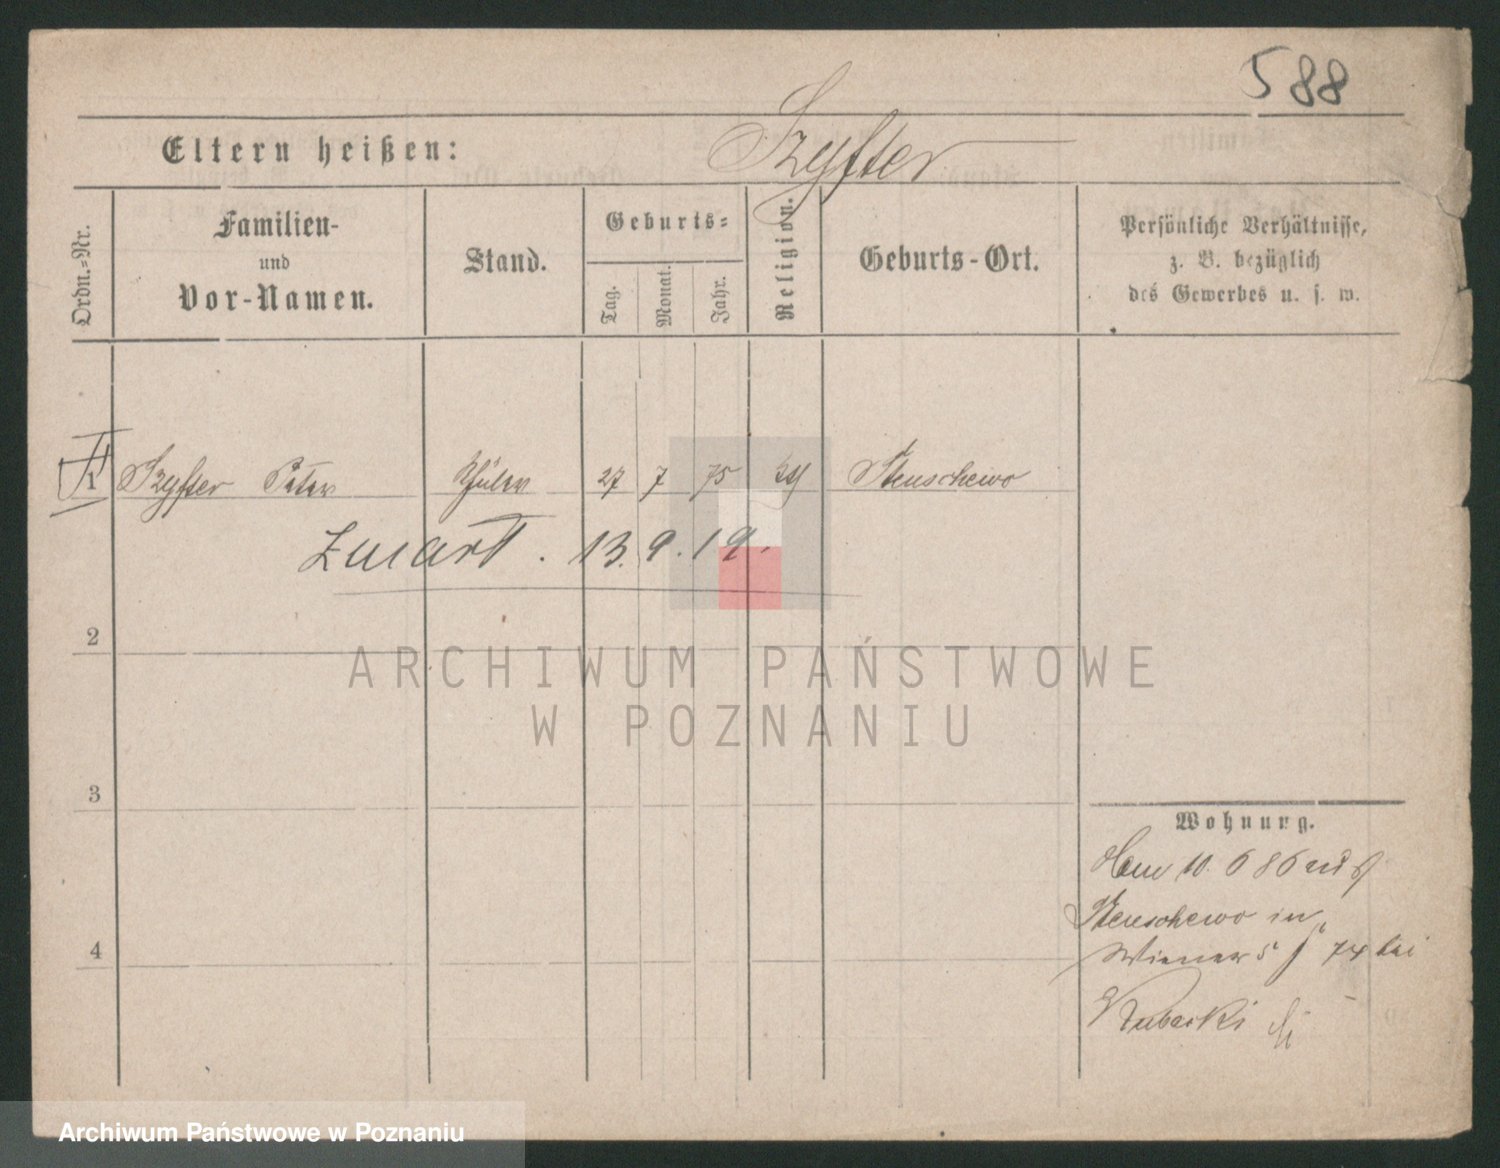 588
Eltern heißen: Szyfter
Ordn.-Nr.
Familien-
und
Vor-Namen.
Stand.
Geburts-
Tag.
Monat.
Jahr.
Religion.
Geburts-Ort.
Persönliche Verhältnisse,
z. B. bezüglich
des Gewerbes u. s. w.
1 Szyfter Peter Schüler 27 7 75 Stenschewo
Zmarł. 13.9.19.
2
3
4
Wohnung.
10. 6 86 aus
Stenschewo in
74 bei
Kubacki
ARCHIWUM PAŃSTWOWE
W POZNANIU
Archiwum Państwowe w Poznaniu